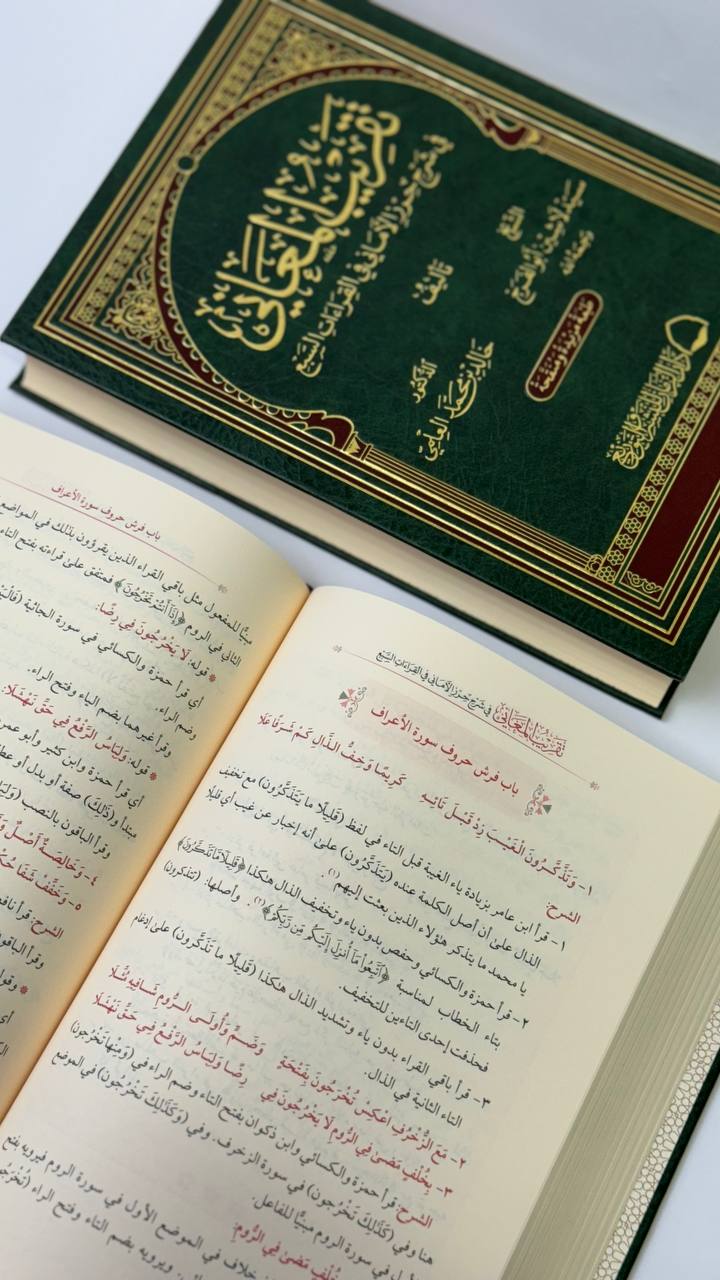 تقريب المعاني
في شرح حرز الأماني في القراءات السبع
تأليف
الشيخ
سيد لاشين أبو الفرج
رحمه الله
الدكتور
خالد بن محمد العلمي
تقريب المعاني في شرح حرز الأماني في القراءات السبع
باب فرش حروف سورة الأعراف
١- وَتَذَّكَّرُونَ الْغَيْبَ زِدْ قَبْلَ تَائِهِ كَرِيمًا وَخِفُّ الذَّالِ كَمْ شَرَفًا عَلَا
الشرح:
١- قرأ ابن عامر بزيادة ياء الغيبة قبل التاء في لفظ (قليلًا ما يَتَذَكَّرُون) مع تخفيف
الذال على أن أصل الكلمة عنده (يَتَذَكَّرُون) على أنه إخبار عن غيب أي قليلا
يا محمد ما يتذكر هؤلاء الذين بعثت إليهم(١).
٢- قرأ حمزة والكسائي وحفص بدون ياء وتخفيف الذال هكذا ﴿قَلِيلًا مَّا تَذَكَّرُونَ﴾
بتاء الخطاب لمناسبة ﴿اتَّبِعُوا مَا أُنزِلَ إِلَيْكُم مِّن رَّبِّكُمْ﴾(٢). وأصلها: (تتذكرون)
فحذفت إحدى التاءين للتخفيف.
٣- قرأ باقي القراء بدون ياء وتشديد الذال هكذا (قليلًا ما تَذَّكَّرون) على إدغام
التاء الثانية في الذال.
٢- مَعَ الزُّخْرُفِ اعْكِسْ تُخْرَجُونَ بِفَتْحَةٍ وَضَمٍّ وَأُولَى الرُّومِ شَافِيهِ مُثِّلَا
٣- بِخُلْفٍ مَضَى فِي الرُّومِ لَا يَخْرُجُونَ فِي رِضًا وَلِبَاسُ الرَّفْعُ فِي حَقِّ نَهْشَلَا
الشرح: قرأ حمزة والكسائي وابن ذكوان بفتح التاء وضم الراء في (وَمِنْهَا تَخْرُجُونَ)
هنا وفي (كَذَلِكَ تَخْرُجون) في سورة الزخرف. وفي (وَكَذَلِكَ تَخْرُجُون) في الموضع
الأول في سورة الروم مبنيًّا للفاعل.
خلاف في الموضع الأول في سورة الروم فيرويه بفتح
بخُلْفٍ مَضَى فِي الرُّومِ:
ويرويه بضم التاء وفتح الراء
باب فرش حروف سورة الأعراف
مبنيًّا للمفعول مثل باقي القراء الذين يقرؤون بذلك في المواضع
الثاني في الروم ﴿إِذَا أَنتُمْ تَخْرُجُونَ﴾ فمتفق على قراءته بفتح التاء
* قوله: لَا يَخْرُجُونَ فِي رِضًا:
أي قرأ حمزة والكسائي في سورة الجاثية
وضم الراء.
وقرأ غيرهما بضم الياء وفتح الراء.
* قوله: وَلِبَاسُ الرَّفْعُ فِي حَقِّ نَهْشَلَا:
أي قرأ حمزة وابن كثير وأبو عمرو
مبتدأ و(ذلك) صفة أو بدل أو عطف
وقرأ الباقون بالنصب
٤- وَخَالِصَةٌ أَصْلٌ
٥- وَخَفِّفْ شَفَا حُكْمًا
الشرح: قرأ نافع
وقرأ الباقون
* وقوله
أي